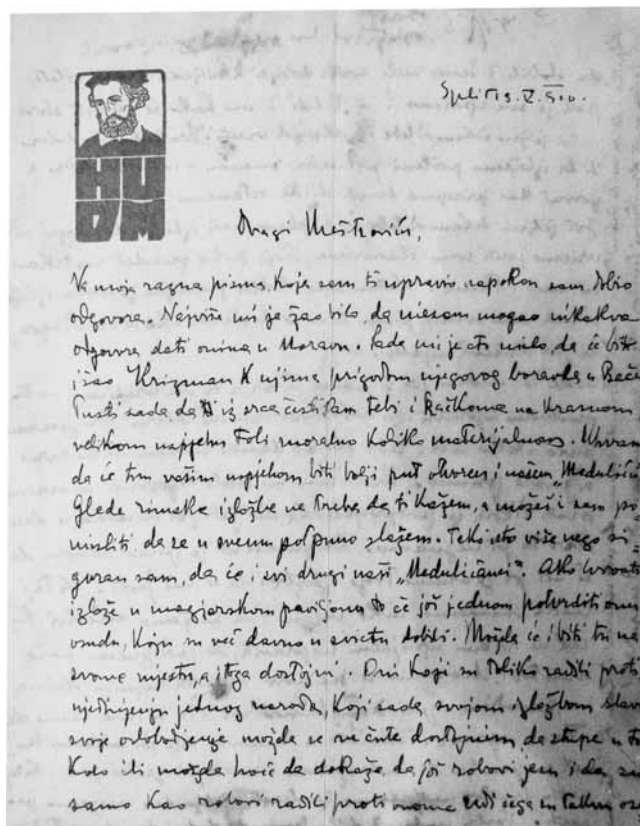 HU
DM
Split 19. V. 910.
Dragi Meštroviću,
Na moja razna pisma, koja sam ti upravio napokon sam dobio
odgovora. Najviše mi je žao bilo, da niesam mogao nikakva
odgovora dati onima u Moravu. Sada mi je milo, da će biti
išao Krizman k njima prigodom njegovog boravka u Beču
Pusti sada da ti iz srca čestitam tebi i Račkome na krasnom
velikom uspjehu toli moralno koliko materijalnom. Uhvam
da će tim vašim uspjehom biti bolji put otvoren i našem „Meduliću
Glede rimske izložbe ne treba da ti kažem, a možeš i sam po
misliti da se u svemu potpuno slažem. Teki isto više nego si-
guran sam, da će i svi drugi naši „Medulićanci". Ako hrvati
izlože u magjarskom paviljonu to će još jednom potvrditi onu
osudu, koju su već davno u svietu dobili. Možda će i biti tu na
svome mjestu, a i toga dostojni. Oni koji su toliko radili proti
ujedinjenju jednog naroda, koji sada svojom izložbom slavi
svoje oslobodjenje možda se ne ćute dostojnim da stupe u to
kolo ili možda hoće da dokažu da još robovi jesu i da su
samo kao robovi radili proti onome radi čega su